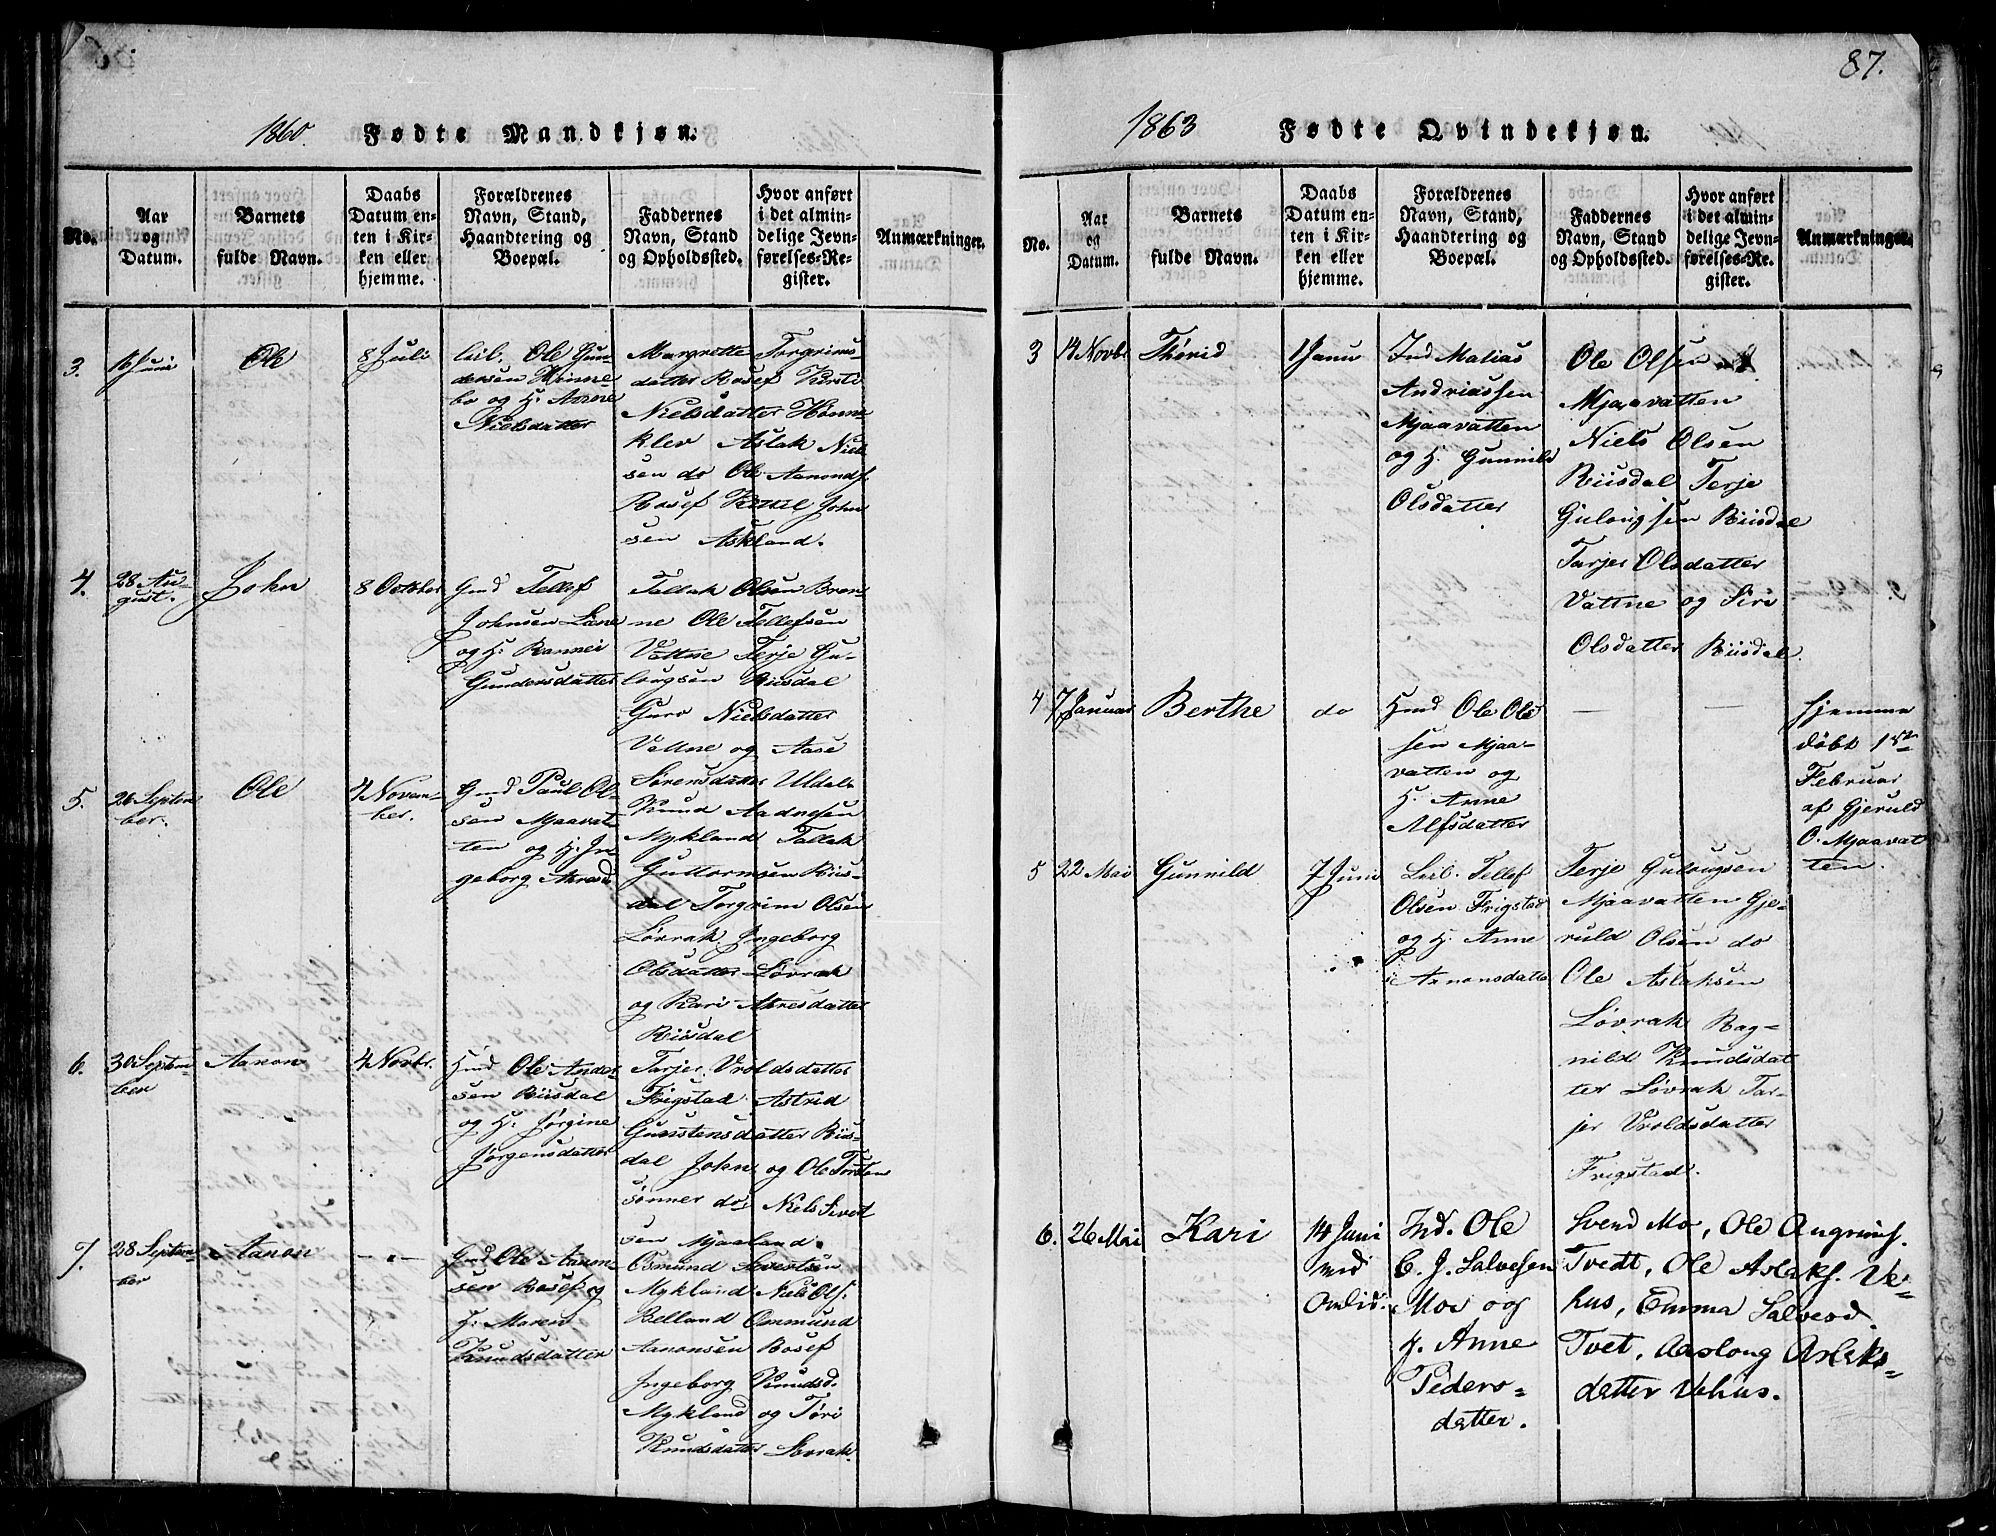 87.
1860. Fødte Mandkjøn.
No.
Aar
og
Datum.
Barnets
fulde Navn.
Daabs
Datum en-
ten i Kir-
ken eller
hjemme.
Forældrenes
Navn, Stand,
Haandtering og
Boepæl.
Faddernes
Navn, Stand
og Opholdssted.
Hvor anført
i det almin-
delige Jevn-
førelses-Re-
gister.
Anmærkninger.
3.
16 Juni
Ole
8 Juli
Ole Gun-
dersen Hinne-
bo og H. Anne
Nielsdatter
Margrette Torgrims-
datter Rosef Kersti
Nielsdatter Hønne-
klev Aslak Niel-
sen do Ole Aanonds.
Rosef Kittil John
sen Askland.
4.
28 Au-
gust.
John
8 Octtober
Gmd Tellef
Johnsen Lane
og H. Rannei
Gundersdatter
Tallak Olsen Bren-
ne Ole Tellefsen
Vattne Terje Gu-
lougsen Riisdal
Guro Nielsdatter
Vattne og Aase
Sørensdatter Uldal.
5.
26 Septem
ber.
Ole
4 Novem-
ber.
Gmd Paul Ol-
sen Mjaavat-
ten og H. In-
geborg Aanesd
Knud Aadnesen
Mykland Tallak
Guttormsen Riis-
dal Torgrim Olsen
Løvrak Ingeborg
Olsdatter Løvrak
og Kari Aanesdatter
Riisdal
6.
30 Septem-
ber
Aanon
4 Novbr.
Hmd Ole Ander
sen Riisdal
og H. Jørgine
Jørgensdatter
Tarjer Vroldsdatter
Frigstad Astrid
Gunstensdatter Riis-
dal John og Ole Torsten
sønner do, Niels Sivert
sen Mjaaland.
7.
28 Septem
ber
Aanon
- " -
Gmd Ole Aanon-
sen Rosef og
H. Maren
Knudsdatter
Osmund Sivertsen
Mykland Niels Ols.
Belland Ommund
Aanonsen Rosef
Ingeborg Knudsd.
Mykland og Tøri
Knudsdatter Løvrak.
1863 Fødte Qvindekjøn.
No.
Aar
og
Datum.
Barnets
fulde Navn.
Daabs
Datum en-
ten i Kir-
ken eller
hjemme.
Forældrenes
Navn, Stand,
Haandtering og
Boepæl.
Faddernes
Navn, Stand
og Opholdssted.
Hvor anført
i det almin-
delige Jevn-
førelses-Re-
gister.
Anmærkninger.
3
14 Novbr
Thorid
1 Janu
Ind Matias
Andriassen
Mjaavatten
og H. Gunnild
Olsdatter
Ole Olsen
Mjaavatten
Niels Olsen
Riisdal Terje
Gulougsen Riisdal
Tarjer Olsdatter
Vattne og Siri
Olsdatter Riisdal.
4
7 Januar
Berthe
do
Hmd Ole Ole
sen Mjaa-
vatten og
H. Anne
Alfsdatter
hjemme
døbt 1ste
Februar
af Gjeruld
O. Mjaavat
ten.
5
22 Mai
Gunnild
7 Juni
Leil. Tellef
Olsen Frigstad
og H. Anne
Aanonsdatter
Terje Gulougsen
Mjaavatten Gje-
ruld Olsen do
Ole Aslaksen
Løvrak Rag-
nild Knudsdat
ter Løvrak Tar-
jer Vroldsdatter
Frigstad.
6.
26 Mai
Kari
14 Juni
ved
Omlid.
Ind. Ole
C. J. Salvesen
Moe og
H. Anne
Peders-
datter.
Svend Mo, Ole Angrims.
Tvedt, Ole Aslaks. Ve-
hus, Emma Salvesd.
Tvet, Aaslong Aslaks-
datter Vehus.